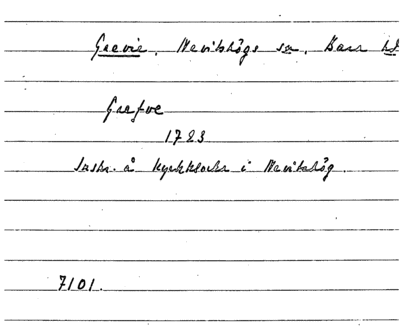 Grevie. Nevitshögs sn. Bara hd
Grefve
1723
Inskr. å kyrkklocka i Nevitshög.
7101.